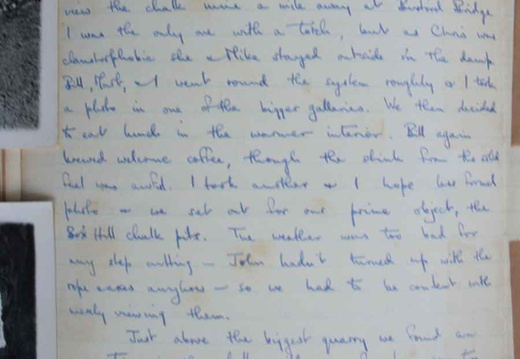 view the chalk mine a mile away at Burford Bridge
I was the only one with a torch, but as Chris was
claustorfhobic she & Mike stayed outside in the damp.
Bill, Mark, & I went round the system roughly & I took
a photo in one of the bigger galleries. We then decided
to eat lunch in the warmer interior. Bill again
brewed welcome coffee, through the stink from the solid
fuel was awful. I took another & I hope less formal
photo & we set out for our prime object, the
Box Hill chalk pits. The weather was too bad for
any step cutting — John hadn't turned up with the
rope & axes anyhow — so we had to be content with
merely viewing them.
Just above the biggest quarry we found an